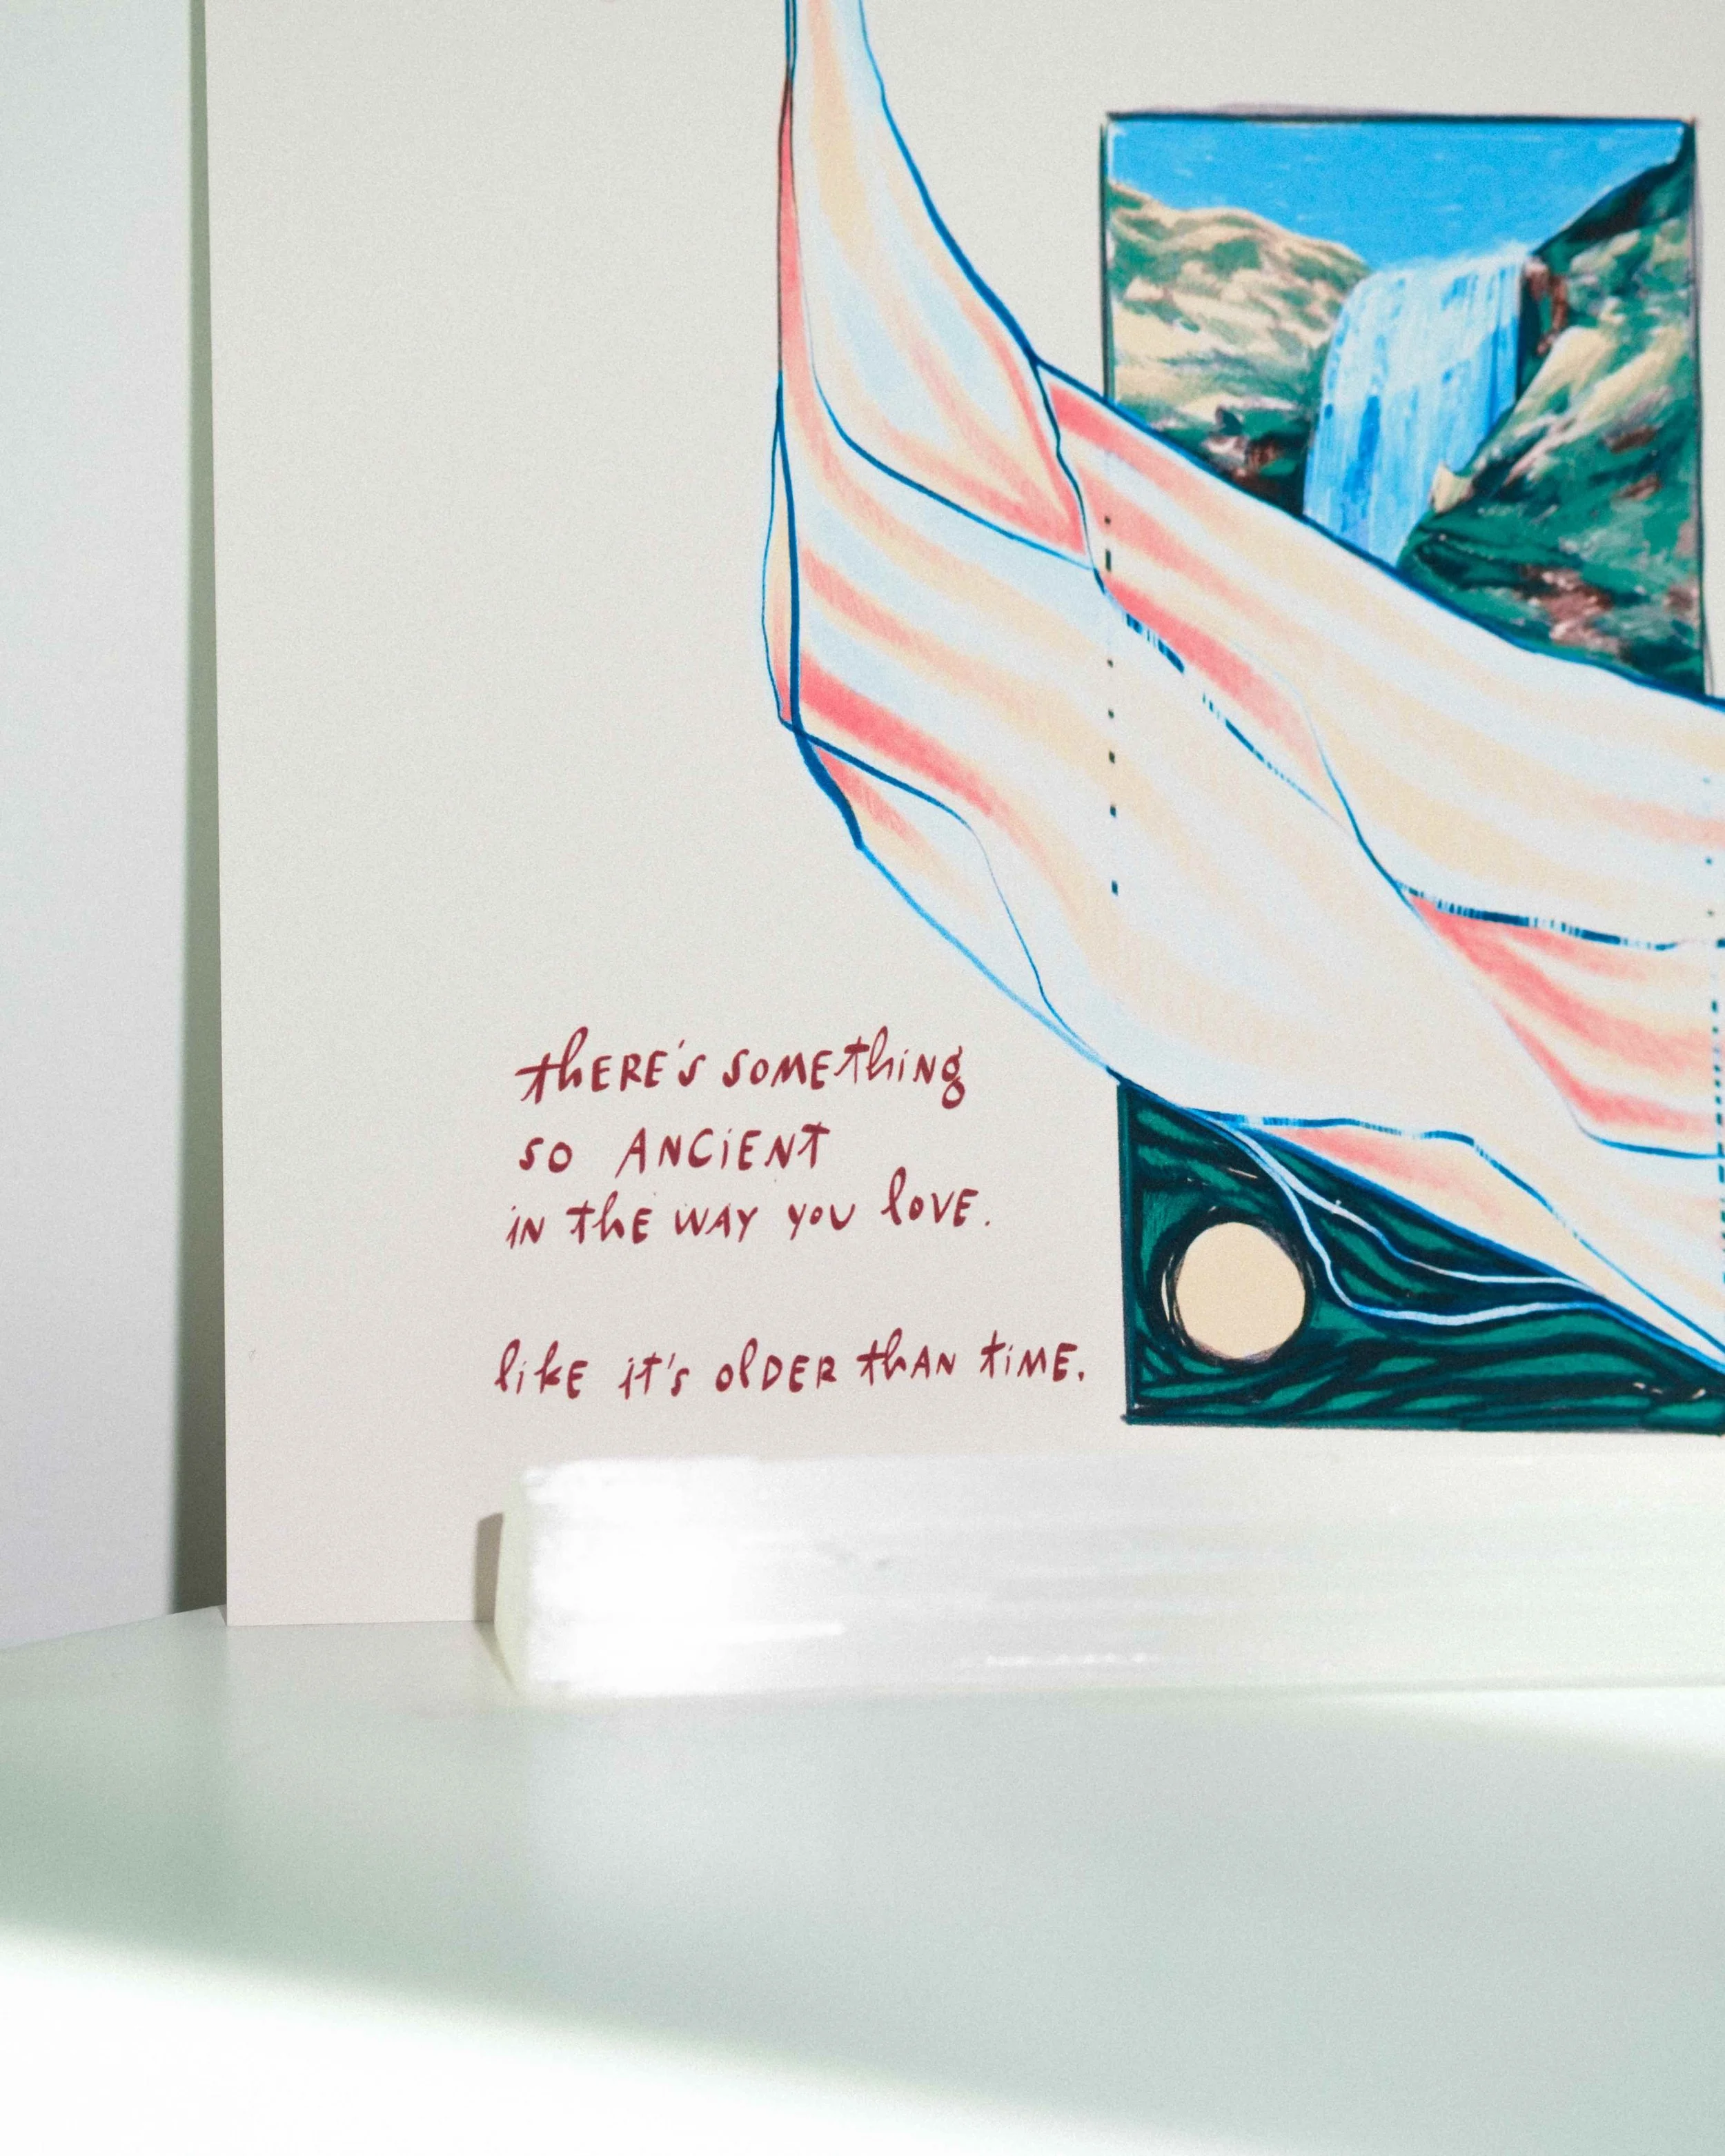 thERE'S SOMEthiNg
SO ANCiENT
iN thE WAY YOU lOVE.
likE it's OlDER thAN tiME.